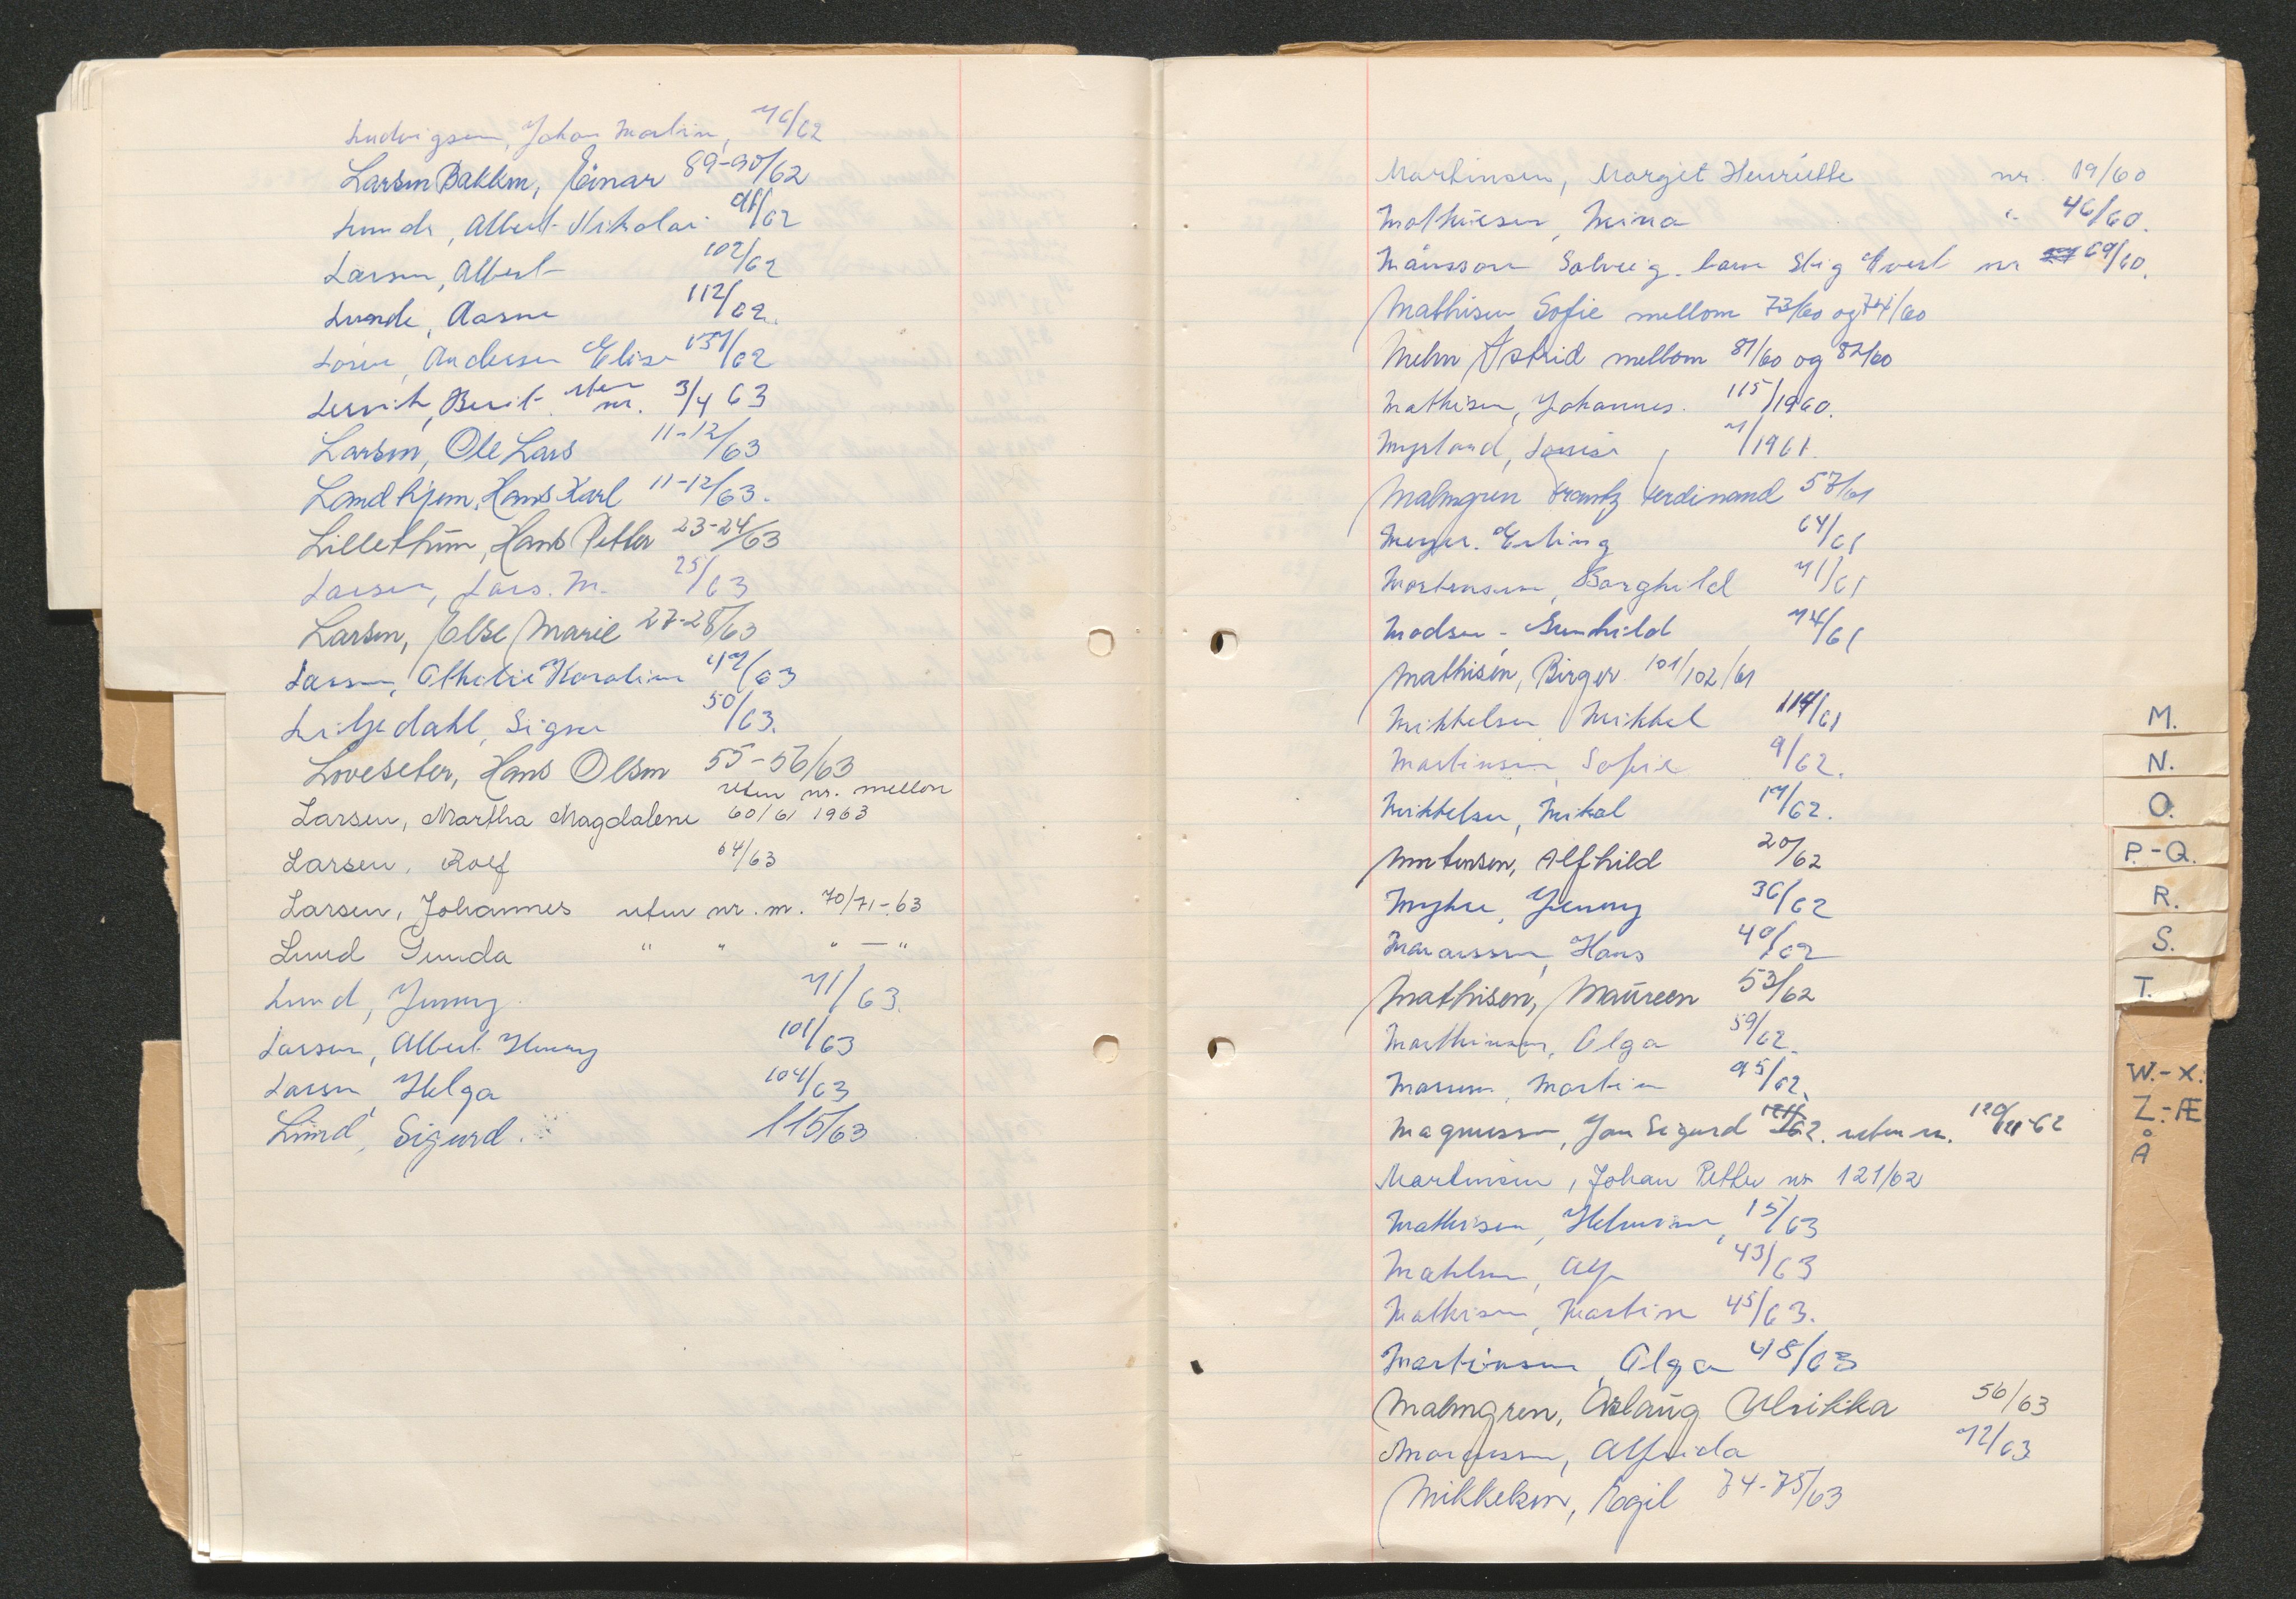 Ludvigsen, Johan Martin, 76/62
Larsen Bakken, Einar 89-90/62
Lunde, Albert Nikolai 91/62
Larsen, Albert 102/62
Lunde, Aasne 112/62.
Andersen Elise 137/62
Lervik, Berit. uten nr. 3/4 63
Larsen, Ole Lars 11-12/63
Landhjem, Hans Karl 11-12/63.
Lillethun, Hans Petter 23-24/63
Larsen, Lars. M. 25/63
Larsen, Else Marie 27-28/63
Larsen, Karoline 47/63
Liljedahl, Signe 50/63.
Løvseter, Hans Olsen 55-56/63
uten nr. mellom
Larsen, Martha Magdalene 60/61 1963
Larsen, Rolf 64/63
Larsen, Johannes uten nr. m. 70/71-63
Lund Gunda " " " — "
Lund, Jenny 71/63.
Larsen, Albert Henry 101/63
Larsen, Helga 104/63
Lund, Sigurd. 115/63
Martinsen, Margit Henriette nr. 19/60
Mathiesen, Mina " 46/60.
Månsson Solveig. barn Stig nr 69/60.
Mathisen Sofie mellom 73/60 og 74/60
Mehn Astrid mellom 81/60 og 82/60
Mathisen, Johannes. 115/1960.
Myrland, Louise, 7/1961.
Malmgren Frantz Ferdinand 57/61
Meyer. Erling 64/61
Mortensen, Borghild 71/61
Madsen - Gunhild 74/61
Mathisen, Birger 101/102/61
Mikkelsen, Mikkel 114/61
Martinsen, Sofie 9/62.
Mikkelsen, Mikal 17/62.
Mortensen, Alfhild 20/62
Myhre, Jenny 36/62
Hans 40/62
Mathisen, Maureen 53/62
Marthinsen, Olga 59/62.
Martin 95/62.
Magnussen, Jan Sigurd 62. uten nr. 120/121-62
Martinsen, Johan Petter nr 121/62
Mathisen, 15/63
Alf 43/63
Mathisen, Martin 45/63.
Martinsen, Olga 48/63
Malmgren, Aslaug Ulrikka 56/63
Alfrida 72/63
Mikkelsen, Egil 74-75/63
M.
N.
O.
P.-Q.
R.
S.
T.
W.-X.
Z.-Æ
Å